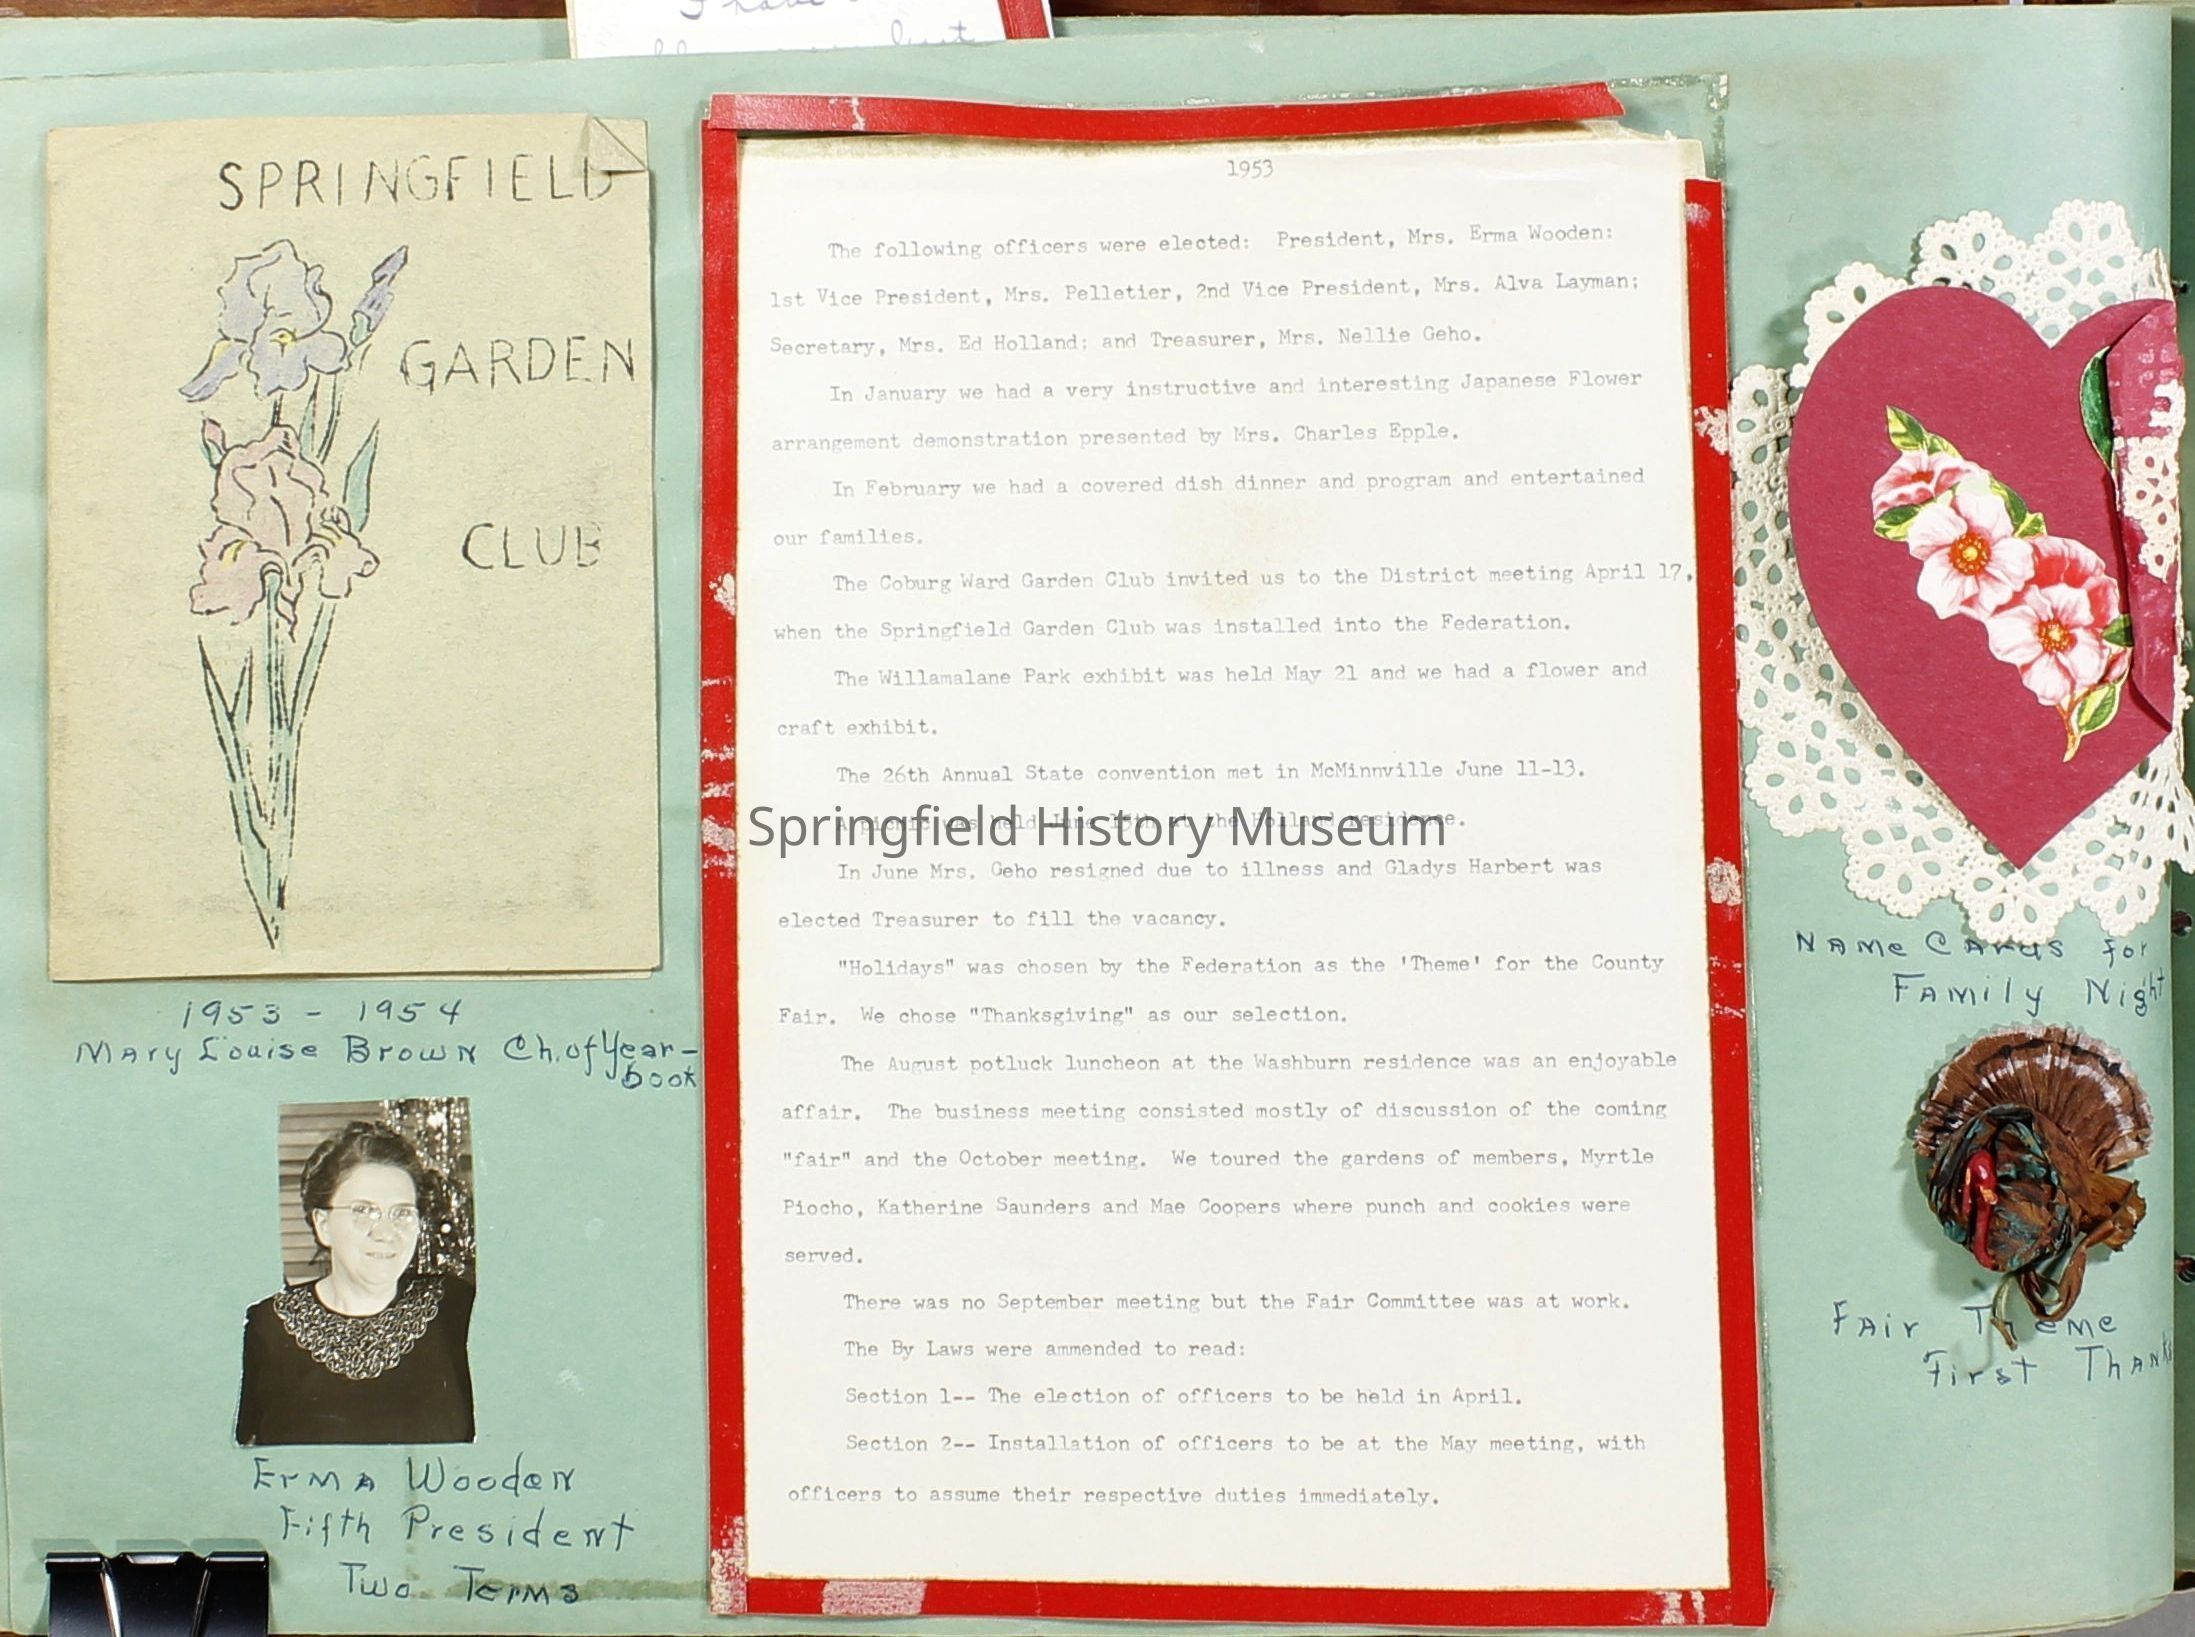 I have
SPRINGFIELD
GARDEN
CLUB
1953 - 1954
Mary Louise Brown Ch. of Year-
book
Erma Wooden
Fifth President
Two Terms
1953
The following officers were elected: President, Mrs. Erma Wooden:
1st Vice President, Mrs. Pelletier, 2nd Vice President, Mrs. Alva Layman;
Secretary, Mrs. Ed Holland; and Treasurer, Mrs. Nellie Geho.
In January we had a very instructive and interesting Japanese Flower
arrangement demonstration presented by Mrs. Charles Epple.
In February we had a covered dish dinner and program and entertained
our families.
The Coburg Ward Garden Club invited us to the District meeting April 17,
when the Springfield Garden Club was installed into the Federation.
The Willamalane Park exhibit was held May 21 and we had a flower and
craft exhibit.
The 26th Annual State convention met in McMinnville June 11-13.
A picnic was held June 15th at the Holland residence.
Springfield History Museum
In June Mrs. Geho resigned due to illness and Gladys Harbert was
elected Treasurer to fill the vacancy.
"Holidays" was chosen by the Federation as the 'Theme' for the County
Fair. We chose "Thanksgiving" as our selection.
The August potluck luncheon at the Washburn residence was an enjoyable
affair. The business meeting consisted mostly of discussion of the coming
"fair" and the October meeting. We toured the gardens of members, Myrtle
Piocho, Katherine Saunders and Mae Coopers where punch and cookies were
served.
There was no September meeting but the Fair Committee was at work.
The By Laws were ammended to read:
Section 1-- The election of officers to be held in April.
Section 2-- Installation of officers to be at the May meeting, with
officers to assume their respective duties immediately.
Name Cards for
Family Night
Fair Theme
First Thanks